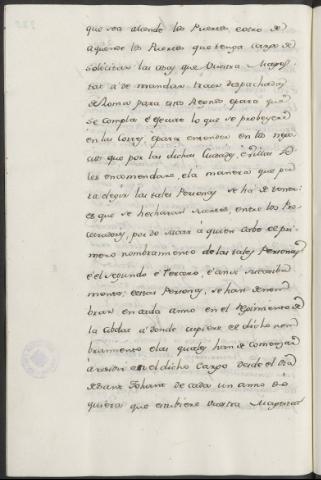 que sea allende los Puertos, e otro de
aquende los Puertos que tenga cargo de
Solicitar las cosas que Vuestra Mages
tat a de mandar traer despachadas
de Roma para estos Reynos, e para que
se cumpla e execute lo que se probeyere
en las Cortes, e para entender en los nego
cios que por las dichas Ciudades, e Villas se
les encomendare, e la manera que pa
ra elegir las tales Personas se ha de tener:
es que se hecharan suertes entre los Pro
curadores, por do salir a quien cabe el pri
mero nombramiento de las tales Personas
e el segundo e Tercero, e ansi sucesiba
mente; e estas Personas, se han de nom
brar en cada anno en el Regimiento de
la Cibdad a donde cupiere el dicho nom
bramiento e las quales han de comenzar
a residir en el dicho Cargo desde el Dia
de Sant Johan de cada un anno do
quiera que estubiere Vuestra Magestad